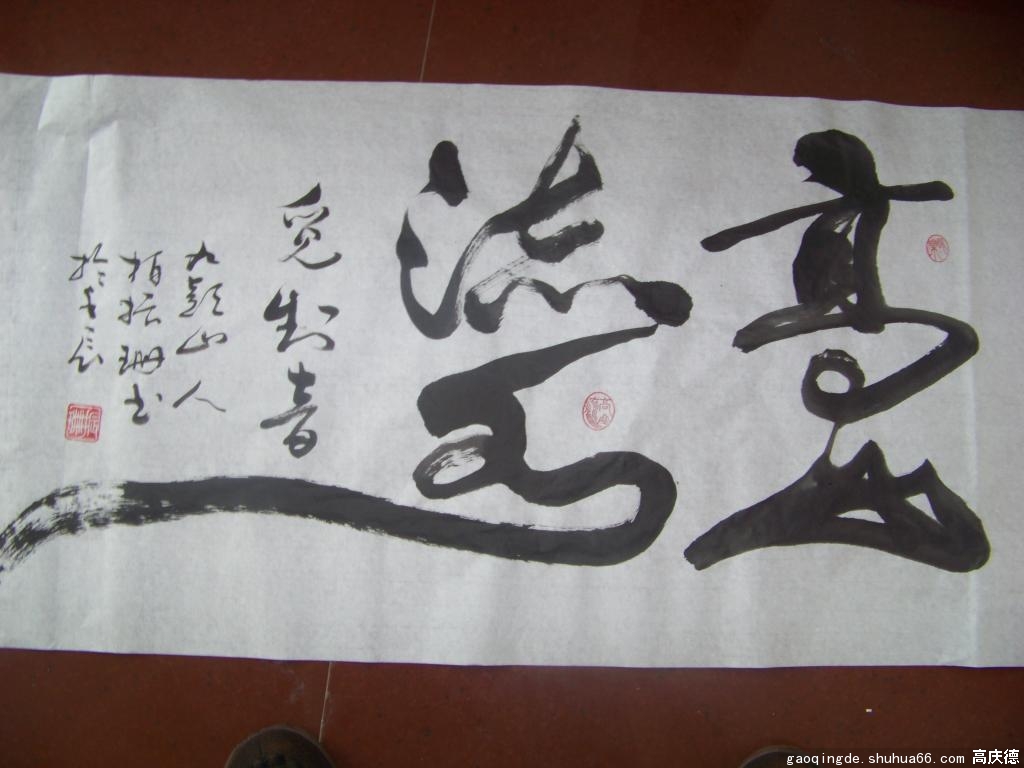 高山
流水
觅知音
九山人
柏振珊书
於壬辰
gaoqingde.shuhua66.com 高庆德